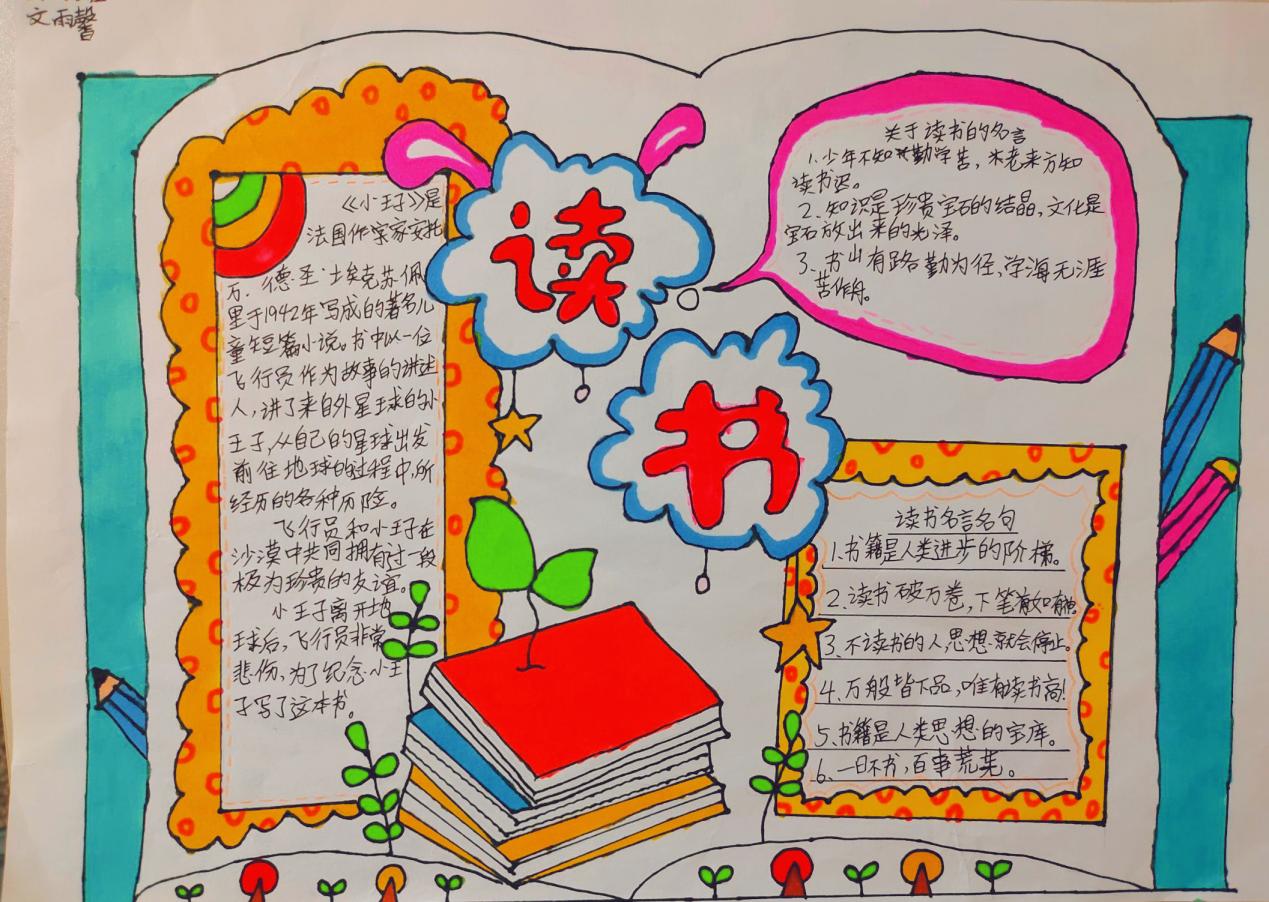 文雨馨
读书
《小王子》是
法国作家安托
万·德·圣·埃克苏佩
里于1942年写成的著名儿
童短篇小说。书中以一位
飞行员作为故事的讲述
人，讲了来自外星球的小
王子，从自己的星球出发
前往地球的过程中，所
经历的各种历险。
飞行员和小王子在
沙漠中共同拥有过一段
极为珍贵的友谊。
小王子离开地
球后，飞行员非常
悲伤，为了纪念小王
子写了这本书。
关于读书的名言
1.少年不知勤学苦，老来方知
读书迟。
2.知识是珍贵宝石的结晶，文化是
宝石放出来的光泽。
3.书山有路勤为径，学海无涯
苦作舟。
读书名言名句
1.书籍是人类进步的阶梯。
2.读书破万卷，下笔如有神。
3.不读书的人，思想就会停止。
4.万般皆下品，唯有读书高！
5.书籍是人类思想的宝库。
6.一日不书，百事荒芜。